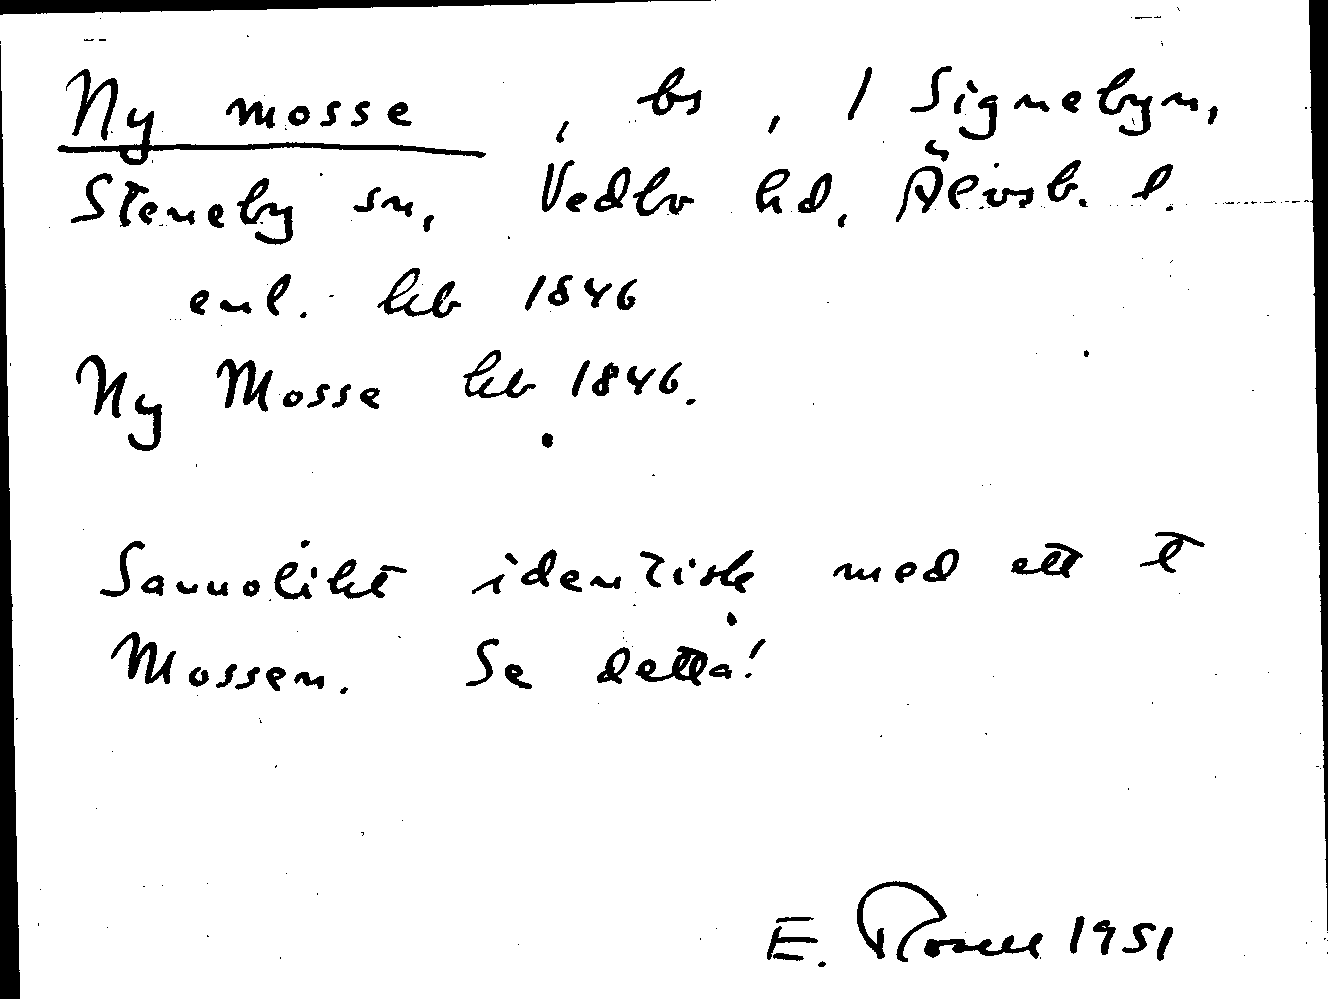 Ny mosse, bs, / Signebyn,
Steneby sn, Vedbo hd, Älvsb. l.
enl. hb 1846
Ny Mosse hb 1846.
Sannolikt identisk med ett t
Mossen. Se detta!
E. Rosell 1951